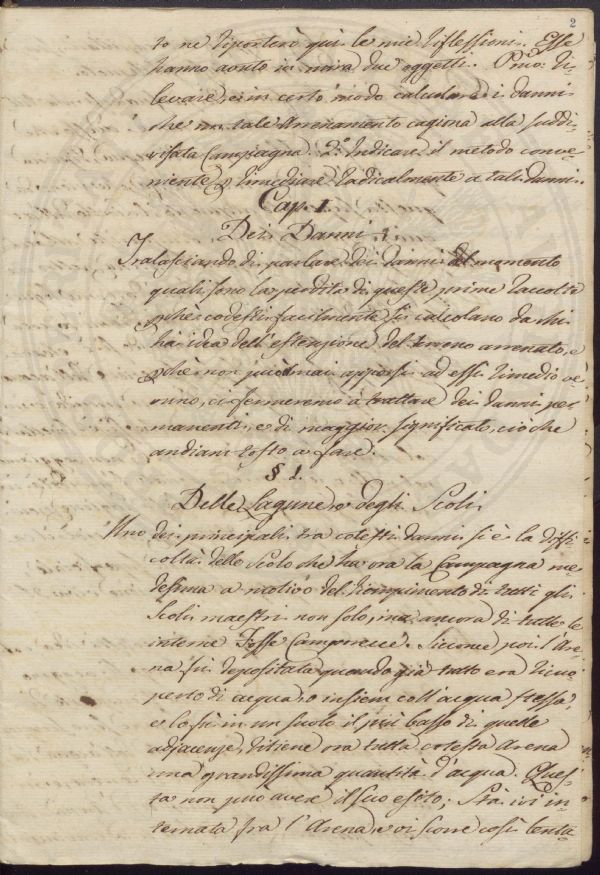 2
to ne riporterò qui le mie riflessioni. Esse
hanno avuto in mira due oggetti. Pmo: Ri-
levare, e in certo modo calcolare i danni
che un tale Arrenamento cagiona alla suddi-
visata Campagna. 2: Indicare il metodo conve-
niente p rimediare radicalmente a tali danni.
Cap. 1.
Dei Danni.
Tralasciando di parlare dei danni del momento
quali sono la perdita di queste prime raccolte
pchè codesti facilmente si calcolano da chi
hà idea dell'estenzione del terreno arrenato, e
pchè non può mai apporsi ad essi rimedio ve-
runo, ci fermeremo à trattare dei danni per-
manenti, e di maggior significato, ciò che
andiam tosto a fare.
§ 1.
Delle Lagune, e degli Scoli.
Uno dei principali tra cotesti danni si è la diffi-
coltà dello Scolo che hà ora la Campagna me-
desima a motivo del riempimento di tutti gli
Scoli maestri non solo, ma ancora di tutte le
interne Fosse Camporecce. Siccome poi l'Are-
na fù depositata quando già tutto era rico-
perto di acqua, o insiem coll'acqua stessa,
e lo fù in un suolo il più basso di quelle
adjacenze, ritiene ora tutta cotesta Arena
una grandissima quantità d'acqua. Ques-
ta non può avere il suo esito; Stà ivi in-
ternata fra l'Arena, e vi scorre così lenta-